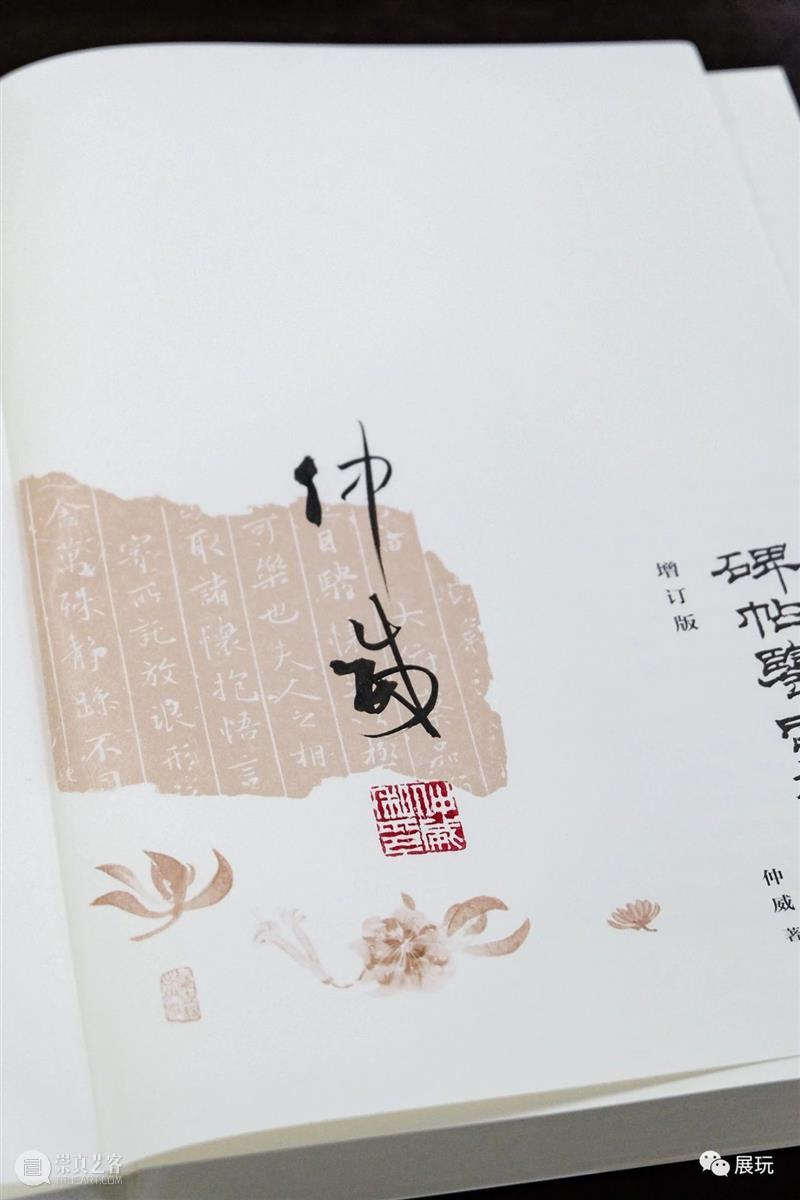 碑帖鑒定
增订版
仲威 著
仲威
目騁懷
可樂也夫人之相
取諸懷抱悟言
寄所託放浪形
舍萬殊靜躁不同
仲威
崇真艺客
展玩